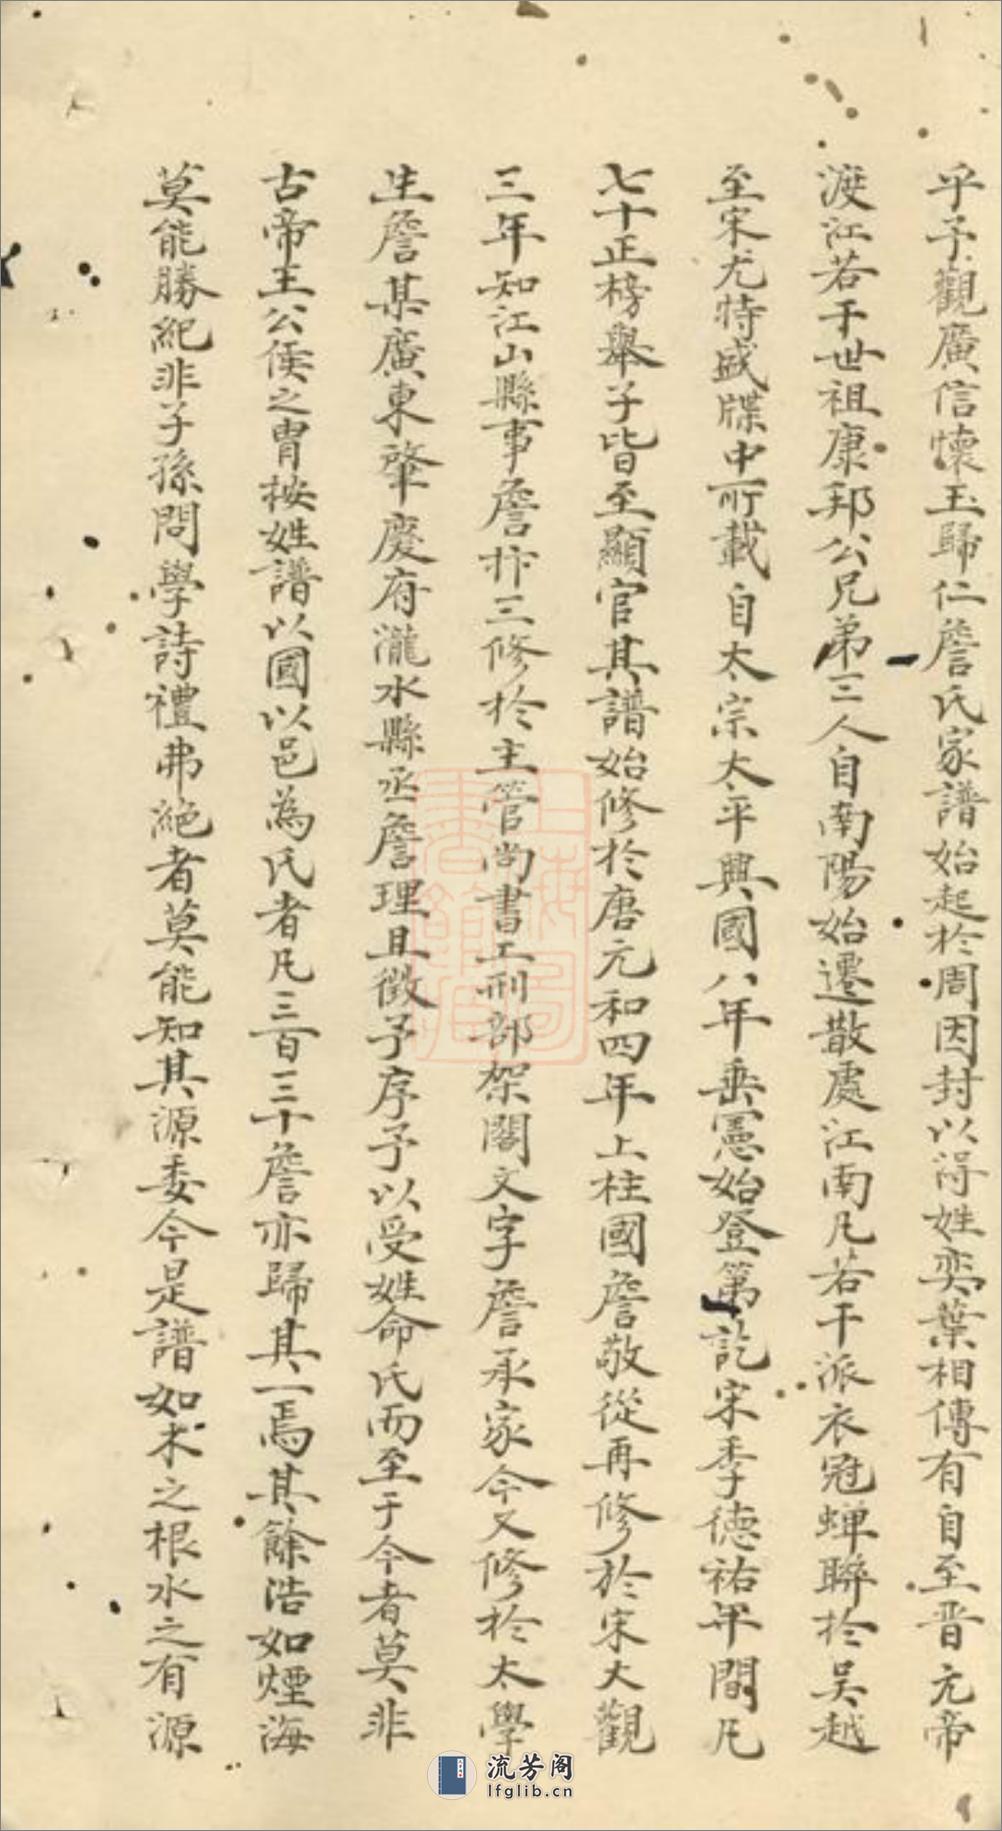 乎予觀廣信懷玉歸仁詹氏家譜始起於周因封以得姓奕葉相傳有自至晋元帝
渡江若干世祖康邦公兄弟三人自南陽始遷散處江南凡若干派衣冠蝉聯於吴越
至宋尤特盛牒中所載自太宗太平興國八年乗憲始登第訖宋季德祐年間凡
七十正榜舉子皆至顯官其譜始修於唐元和四年上柱國詹敬從再修於宋大觀
三年知江山縣事詹抃三修於主管尚書工刑部架閣文字詹承家今又修於太學
生詹某廣東肇慶府瀧水縣丞詹理且徴予序予以受姓命氏而至于今者莫非
古帝王公侯之胄按姓譜以國以邑為氏者凡三百三十詹亦歸其一焉其餘浩如煙海
莫能勝紀非子孫問學詩禮弗絶者莫能知其源委今是譜如木之根水之有源
上海圖書館藏
流芳阁
lfglib.cn